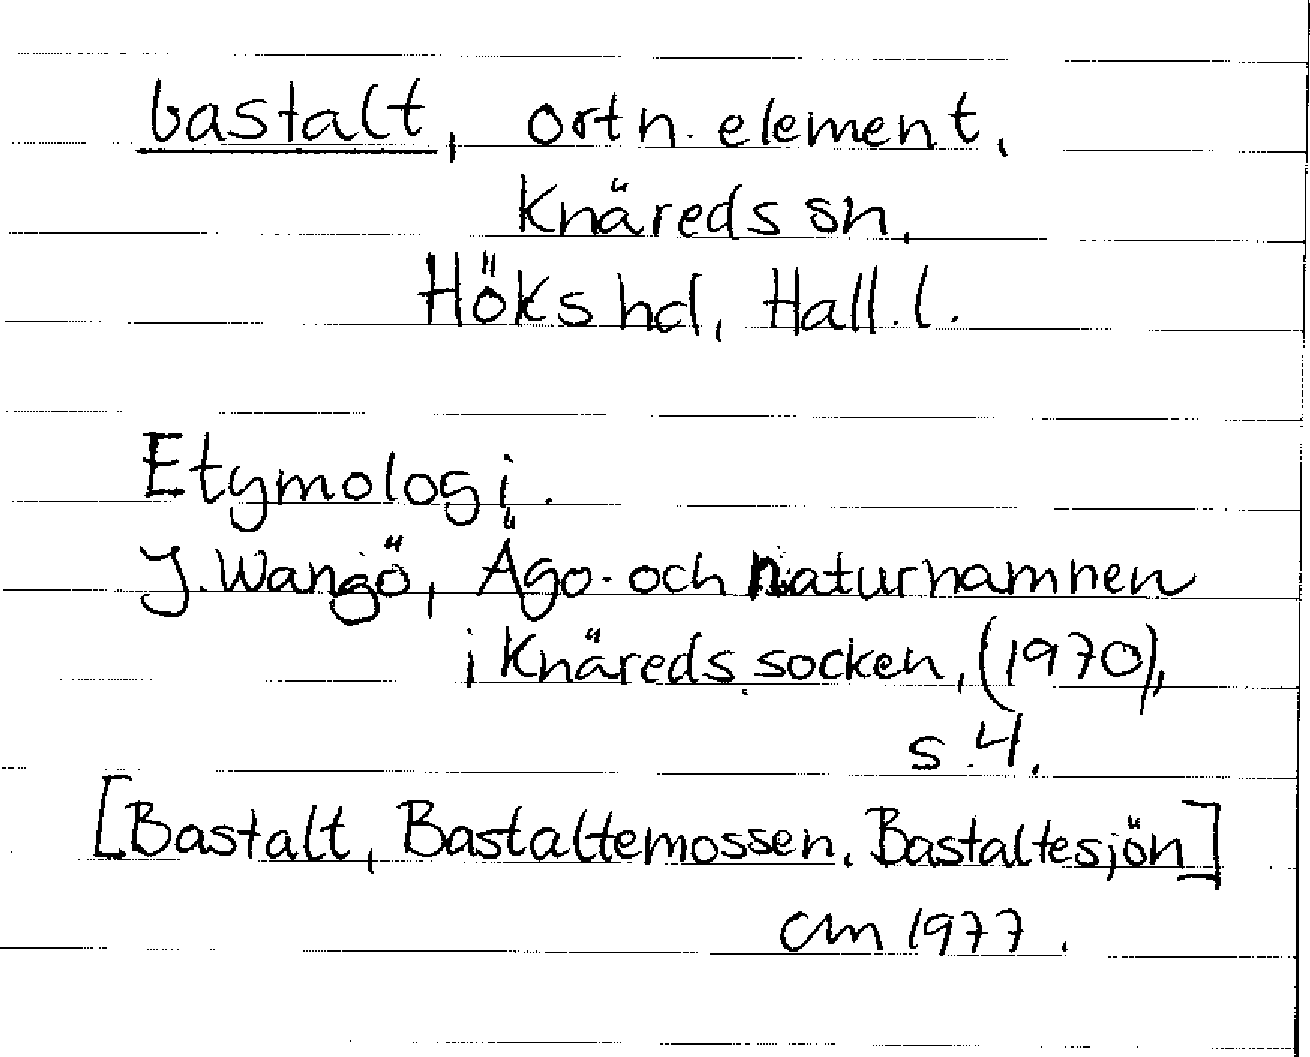 bastalt, ortn. element.
Knäreds sn.
Höks hd, Hall. l.
Etymologi.
J. Wangö, Ägo- och naturnamnen
i Knäreds socken, (1970),
s. 4.
[Bastalt, Bastaltemossen, Bastaltesjön]
CM 1977.